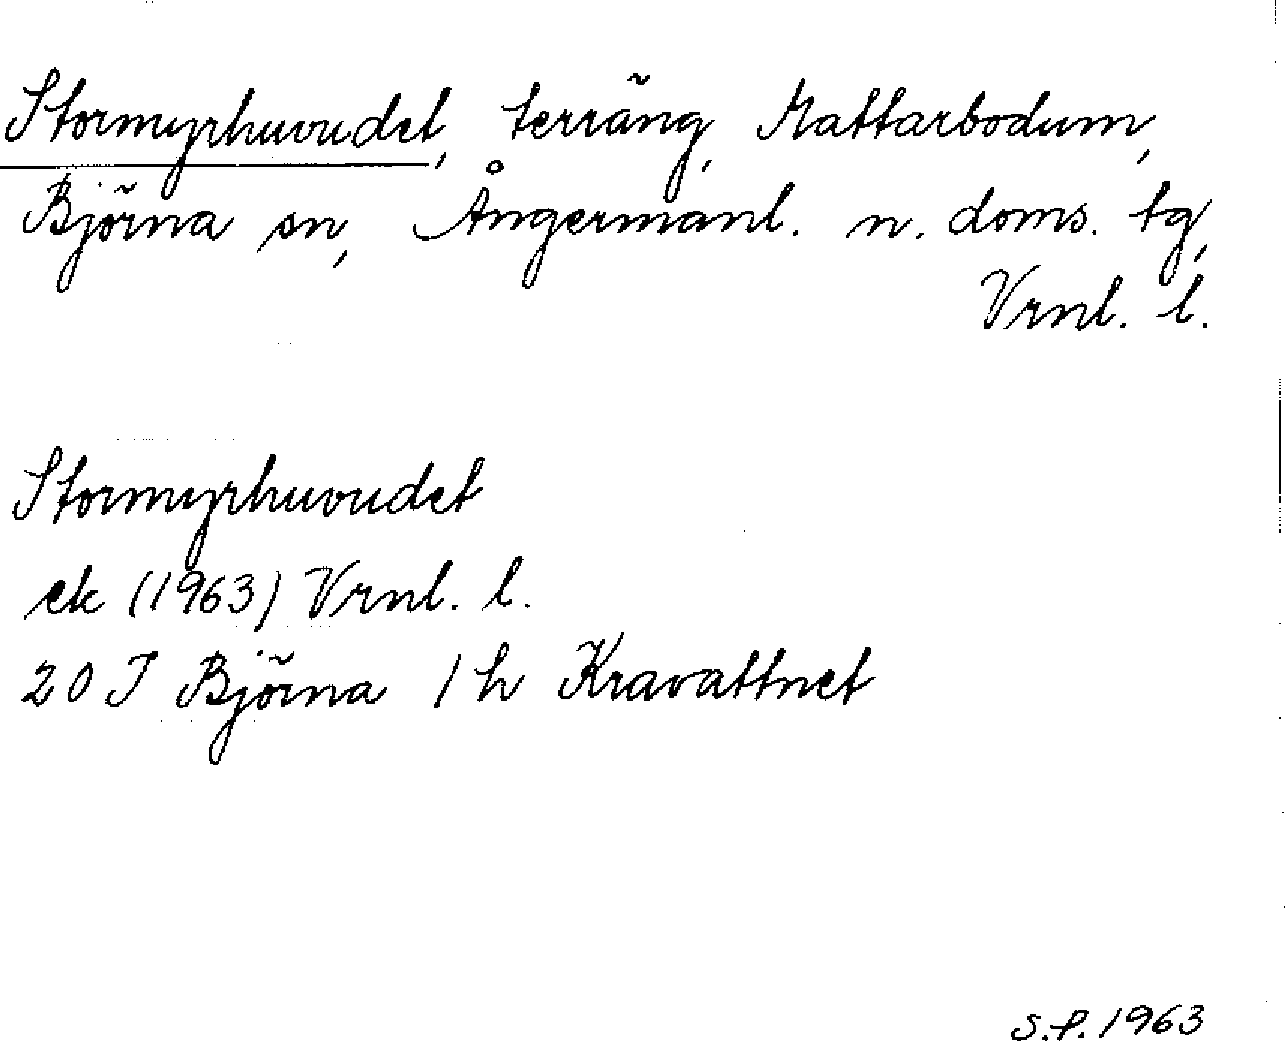 Stormyrhuvudet, terräng, Mattarbodum,
Björna sn, Ångermanl. n. doms. tg,
Vrnl. l.
Stormyrhuvudet
ek (1963) Vrnl. l.
20 J Björna 1 h Kravattnet
S.P. 1963